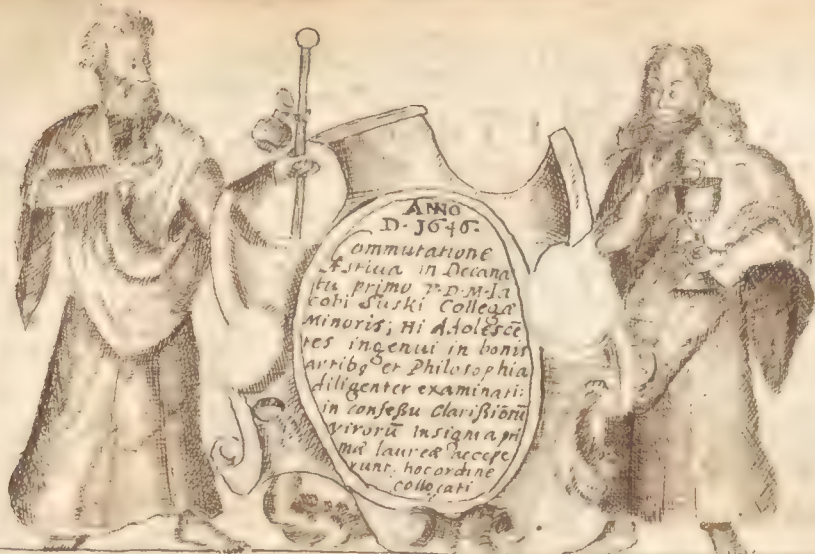 ANNO
D. J646.
Commutatione
Æstiua in Decana
tu primo P. D. M. Ia
cobi Suski Collegæ
Minoris; Hi Adolescē
tes ingenui in bonis
artibꝯ et Philosophia
diligenter examinati:
in confeßu Clarißiorū
virorū Insignia pri
mæ laureæ accepe
runt. hoc ordine
collocati